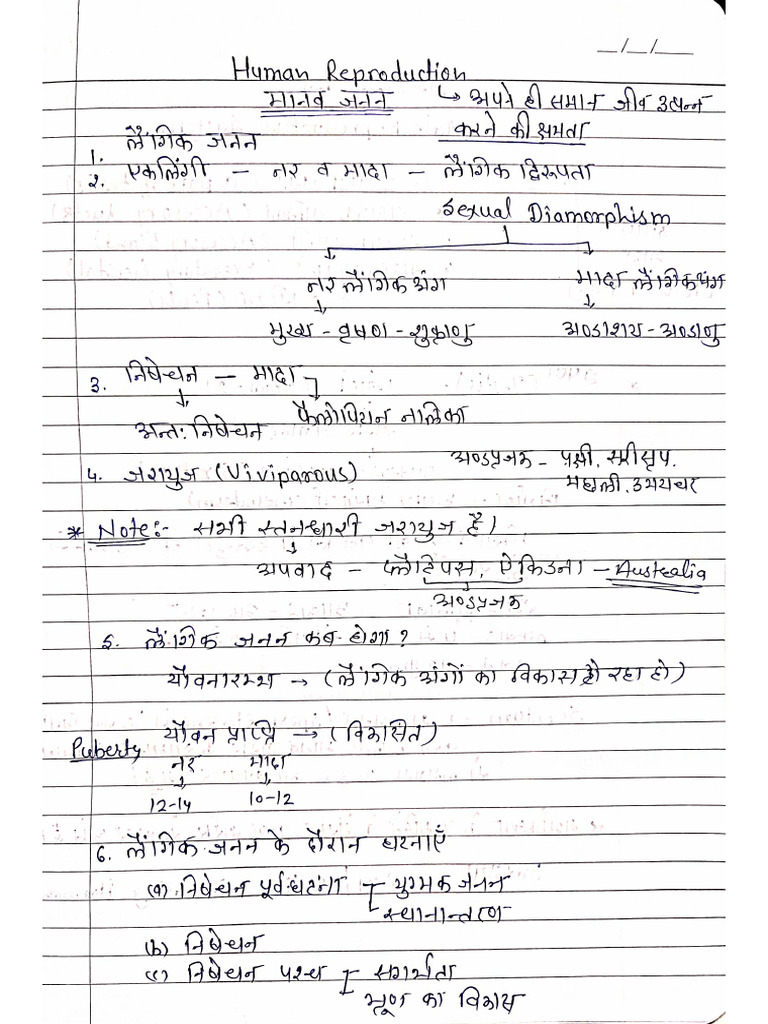 _/_/__
Human Reproduction
मानव जनन ↳ अपने ही समान जीव उत्पन्न
करने की क्षमता
1. लैंगिक जनन
2. एकलिंगी - नर व मादा - लैंगिक द्विरूपता
Sexual Diamorphism
नर लैंगिक अंग मादा लैंगिक अंग
मुख्य - वृषण - शुक्राणु अण्डाशय - अण्डाणु
3. निषेचन - मादा
अन्तः निषेचन फैलोपियन नालिका
4. जरायुज (Viviparous) अण्डप्रजक - पक्षी, सरीसृप,
मछली, उभयचर
* Note:- सभी स्तनधारी जरायुज हैं।
अपवाद - प्लैटिपस, ऐकिडना - Australia
अण्डप्रजक
5. लैंगिक जनन कब होगा?
यौवनारम्भ → (लैंगिक अंगों का विकास हो रहा हो)
यौवन प्राप्ति → (विकसित)
Puberty नर मादा
12-14 10-12
6. लैंगिक जनन के दौरान घटनाएँ
(a) निषेचन पूर्व घटना युग्मक जनन
स्थानान्तरण
(b) निषेचन
(c) निषेचन पश्च सगर्भता
भ्रूण का विकास